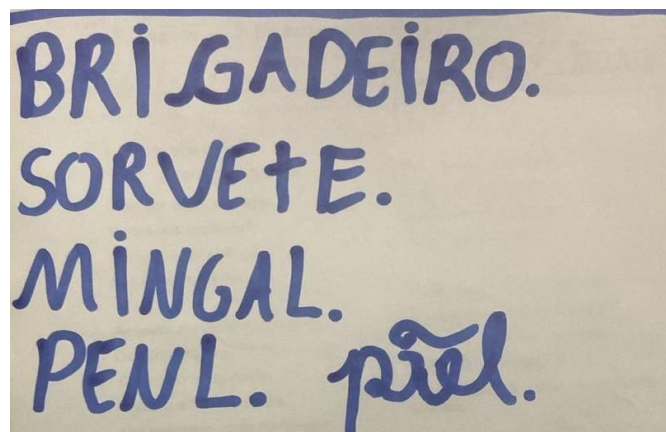 BRIGADEIRO.
SORVETE.
MINGAL.
PENL. pĩel.